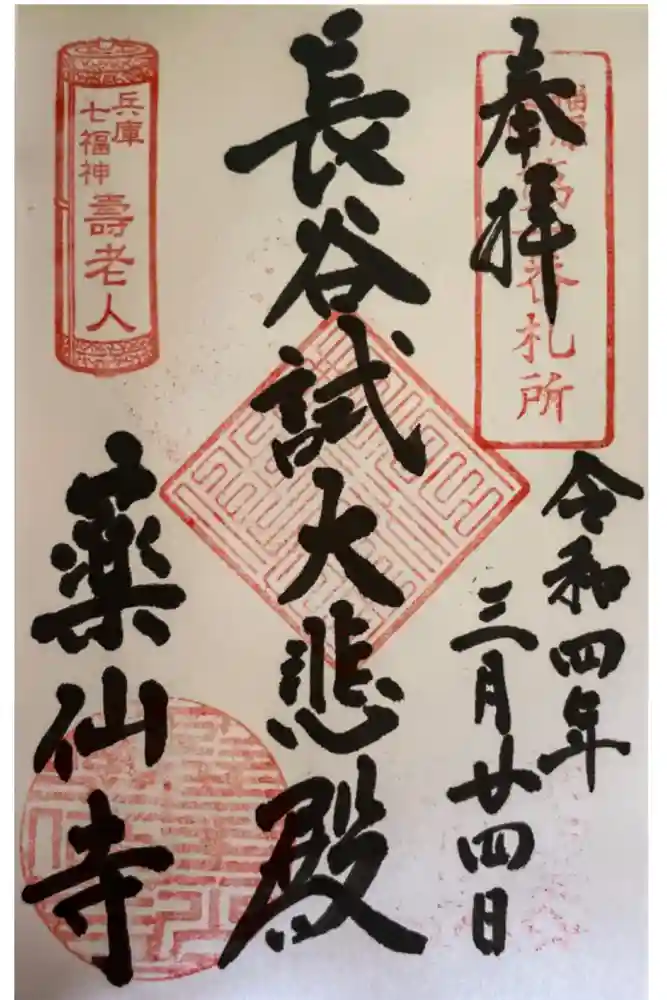 奉拝
番札所
令和四年
三月廿四日
長谷試大悲殿
兵庫
七福神
壽老人
藥仙寺